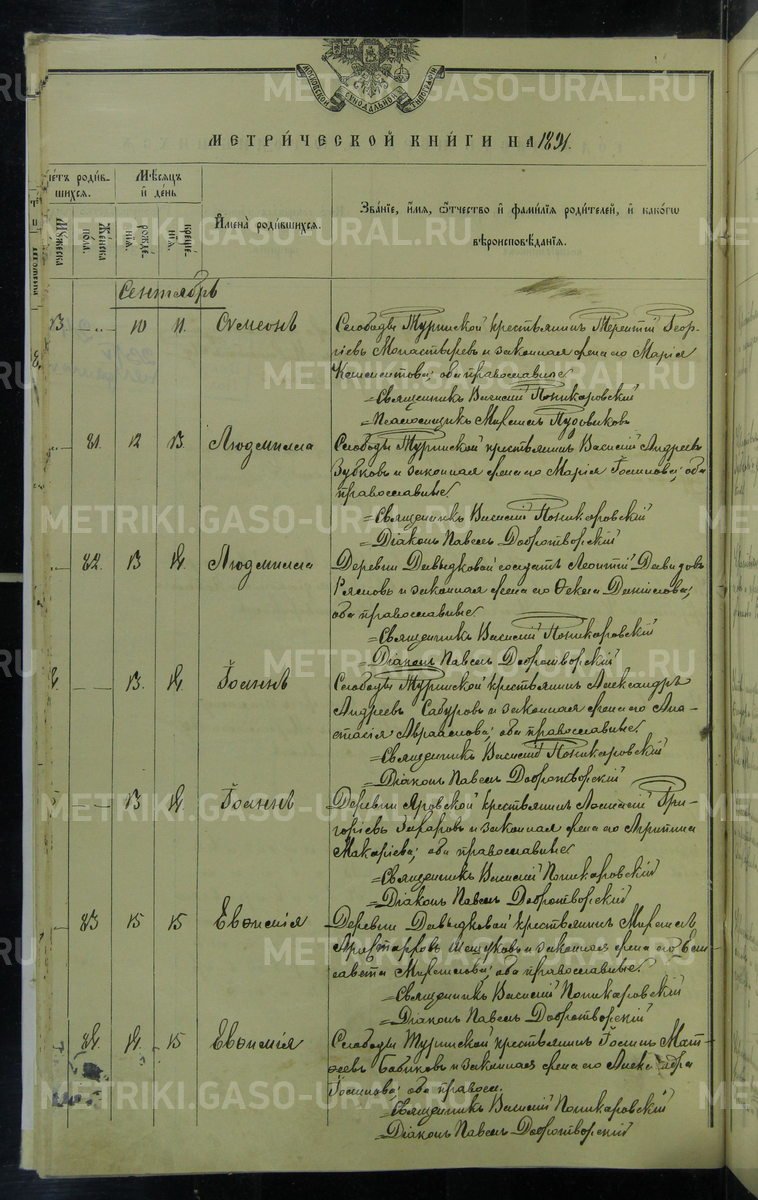 МОСКОВСКОЙ СѴНОДАЛЬНОЙ ТИПОГРАФІИ
МЕТРИ́ЧЕСКОЙ КНИ́ГИ НА 1891.
роди́в-
шихся.
Мѣсяцъ
и҆ де́нь
Му́жеска
Же́нска
пола.
рожде́-
нїѧ.
креще́-
нїѧ.
И҆мена̀ роди́вшихся.
Зва́нїе, и҆́мя, ѻ҆́тчество и҆ фами́лїя роди́телей, и҆ како́гѡ
вѣроисповѣ́данїя.
Сентябрь
10 11. Сѵмеонъ
Слободы Туринской крестьянинъ Терентій Геор-
гіевъ Монастыревъ и законная жена его Марія
Климентова; оба православные.
=Священникъ Василій Поникаровскій
=Псаломщикъ Михаилъ Пудовиковъ
81. 12 13. Людмилла
Слободы Туринской крестьянинъ Василій Андреевъ
Зубковъ и законная жена его Марія Іоаннова; оба
православные.
=Священникъ Василій Поникаровскій
=Діаконъ Павелъ Добротворскій
82. 13 14. Людмилла
Деревни Давыдковой солдатъ Леонтій Давидовъ
и законная жена его Ѳекла Данилова;
оба православные.
=Священникъ Василій Поникаровскій
=Діаконъ Павелъ Добротворскій
13. 14. Іоаннъ
Слободы Туринской крестьянинъ Александръ
Андреевъ Сабуровъ и законная жена его Ана-
стасія Авраамова; оба православные.
=Священникъ Василій Поникаровскій
=Діаконъ Павелъ Добротворскій
13 14. Іоаннъ
Деревни Яровской крестьянинъ Аѳанасій Гри-
горіевъ Захаровъ и законная жена его Агрипина
Макаріева; оба православные.
=Священникъ Василій Поникаровскій
=Діаконъ Павелъ Добротворскій
83 15 15 Евѳимія
Деревни Давыдковой крестьянинъ Михаилъ
и законная жена его Ели-
савета Михаилова; оба православные.
=Священникъ Василій Поникаровскій
=Діаконъ Павелъ Добротворскій
84. 14. 15 Евѳимія
Слободы Туринской крестьянинъ Іоаннъ Мат-
ѳеевъ Бабиковъ и законная жена его Александра
Іоаннова; оба правосл.
=Священникъ Василій Поникаровскій
=Діаконъ Павелъ Добротворскій
METRIKI.GASO-URAL.RU